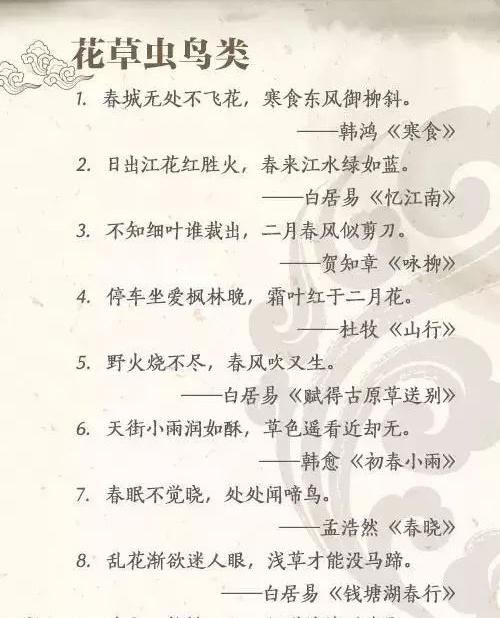 花草虫鸟类
1. 春城无处不飞花，寒食东风御柳斜。
——韩鸿《寒食》
2. 日出江花红胜火，春来江水绿如蓝。
——白居易《忆江南》
3. 不知细叶谁裁出，二月春风似剪刀。
——贺知章《咏柳》
4. 停车坐爱枫林晚，霜叶红于二月花。
——杜牧《山行》
5. 野火烧不尽，春风吹又生。
——白居易《赋得古原草送别》
6. 天街小雨润如酥，草色遥看近却无。
——韩愈《初春小雨》
7. 春眠不觉晓，处处闻啼鸟。
——孟浩然《春晓》
8. 乱花渐欲迷人眼，浅草才能没马蹄。
——白居易《钱塘湖春行》